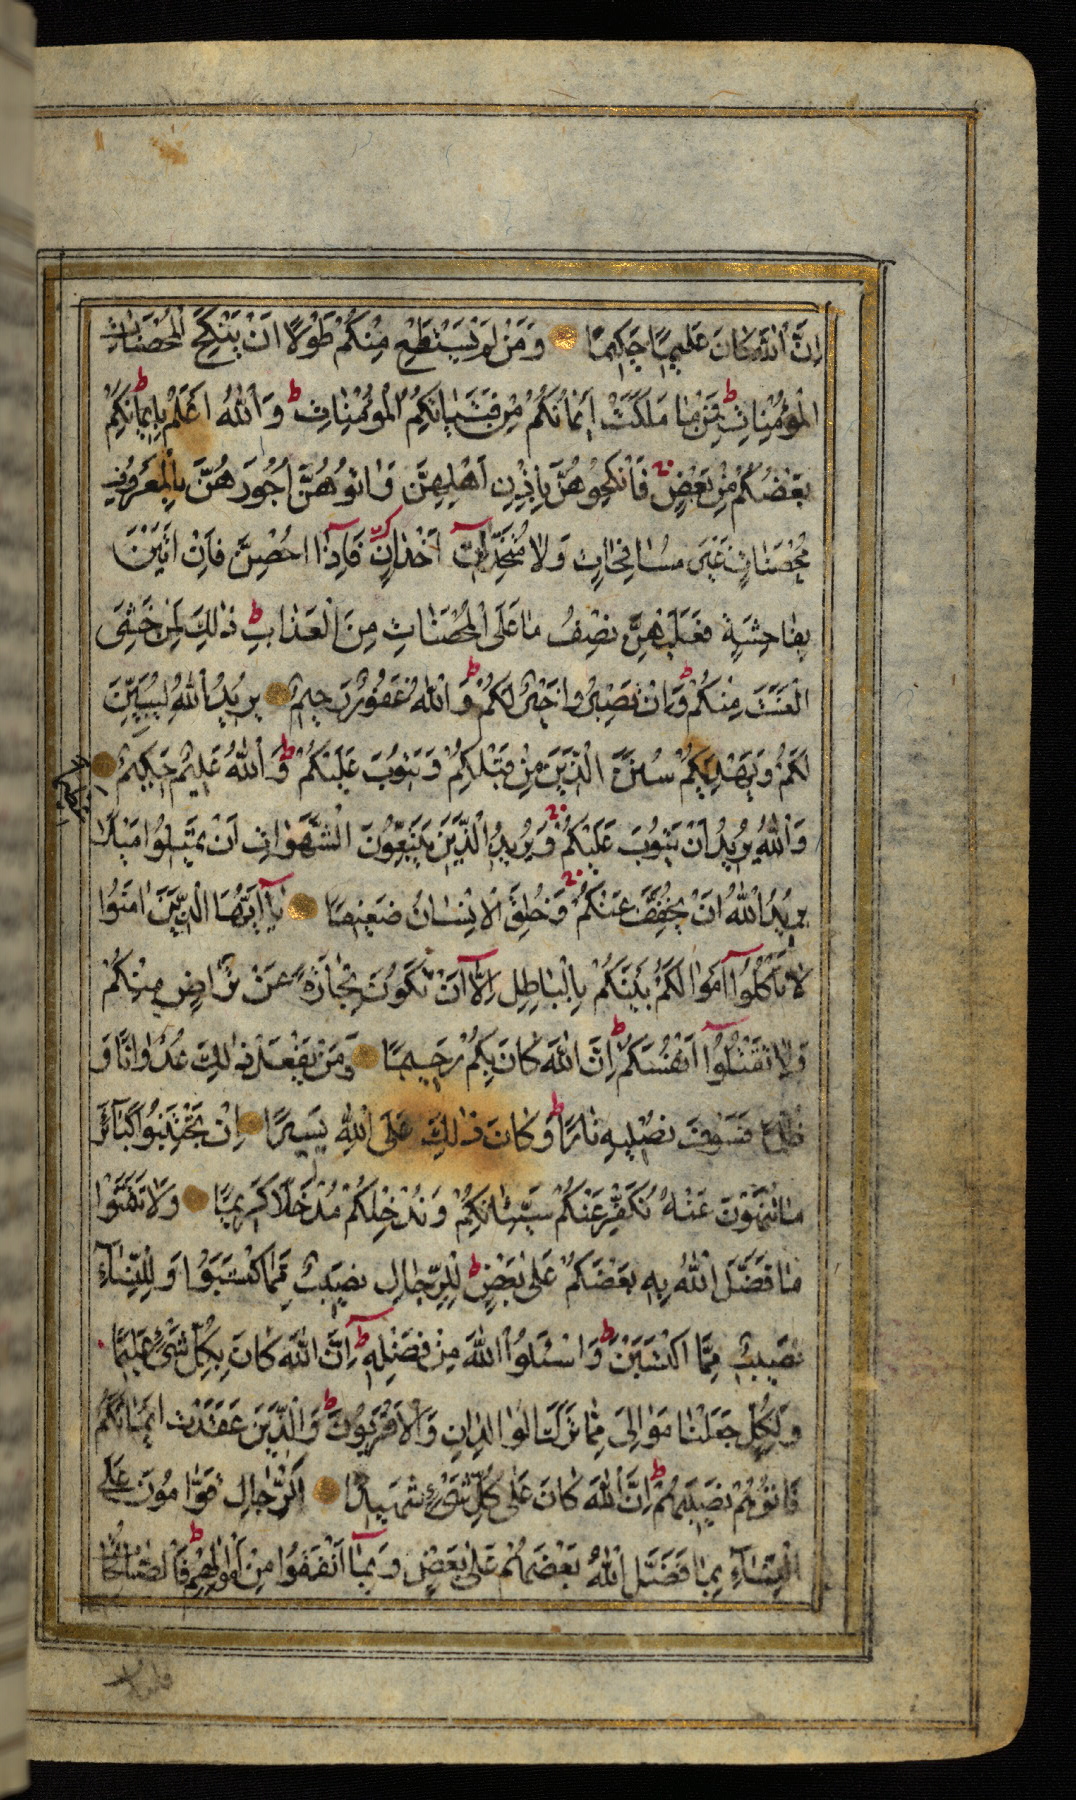 اِنَّ اللّٰهَ كَانَ عَلِيمًا حَكِيمًا وَمَنْ لَمْ يَسْتَطِعْ مِنْكُمْ طَوْلًا اَنْ يَنْكِحَ الْمُحْصَنَاتِ
الْمُؤْمِنَاتِ فَمِنْ مَا مَلَكَتْ اَيْمَانُكُمْ مِنْ فَتَيَاتِكُمُ الْمُؤْمِنَاتِ ط وَاللّٰهُ اَعْلَمُ بِاِيمَانِكُمْ ط
بَعْضُكُمْ مِنْ بَعْضٍ فَانْكِحُوهُنَّ بِاِذْنِ اَهْلِهِنَّ وَاٰتُوهُنَّ اُجُورَهُنَّ بِالْمَعْرُوفِ
مُحْصَنَاتٍ غَيْرَ مُسَافِحَاتٍ وَلَا مُتَّخِذَاتِ اَخْدَانٍ فَاِذَا اُحْصِنَّ فَاِنْ اَتَيْنَ
بِفَاحِشَةٍ فَعَلَيْهِنَّ نِصْفُ مَا عَلَى الْمُحْصَنَاتِ مِنَ الْعَذَابِ ط ذٰلِكَ لِمَنْ خَشِيَ
الْعَنَتَ مِنْكُمْ ط وَاَنْ تَصْبِرُوا خَيْرٌ لَكُمْ ط وَاللّٰهُ غَفُورٌ رَحِيمٌ يُرِيدُ اللّٰهُ لِيُبَيِّنَ
لَكُمْ وَيَهْدِيَكُمْ سُنَنَ الَّذِينَ مِنْ قَبْلِكُمْ وَيَتُوبَ عَلَيْكُمْ ط وَاللّٰهُ عَلِيمٌ حَكِيمٌ
وَاللّٰهُ يُرِيدُ اَنْ يَتُوبَ عَلَيْكُمْ وَيُرِيدُ الَّذِينَ يَتَّبِعُونَ الشَّهَوَاتِ اَنْ تَمِيلُوا مَيْلًا
يُرِيدُ اللّٰهُ اَنْ يُخَفِّفَ عَنْكُمْ وَخُلِقَ الْاِنْسَانُ ضَعِيفًا يَا اَيُّهَا الَّذِينَ اٰمَنُوا
لَا تَاْكُلُوا اَمْوَالَكُمْ بَيْنَكُمْ بِالْبَاطِلِ اِلَّا اَنْ تَكُونَ تِجَارَةً عَنْ تَرَاضٍ مِنْكُمْ
وَلَا تَقْتُلُوا اَنْفُسَكُمْ ط اِنَّ اللّٰهَ كَانَ بِكُمْ رَحِيمًا وَمَنْ يَفْعَلْ ذٰلِكَ عُدْوَانًا وَ
ظُلْمًا فَسَوْفَ نُصْلِيهِ نَارًا ط وَكَانَ ذٰلِكَ عَلَى اللّٰهِ يَسِيرًا اِنْ تَجْتَنِبُوا كَبَائِرَ
مَا تُنْهَوْنَ عَنْهُ نُكَفِّرْ عَنْكُمْ سَيِّئَاتِكُمْ وَنُدْخِلْكُمْ مُدْخَلًا كَرِيمًا وَلَا تَتَمَنَّوْا
مَا فَضَّلَ اللّٰهُ بِهِ بَعْضَكُمْ عَلٰى بَعْضٍ ط لِلرِّجَالِ نَصِيبٌ مِمَّا اكْتَسَبُوا وَلِلنِّسَاءِ
نَصِيبٌ مِمَّا اكْتَسَبْنَ ط وَاسْئَلُوا اللّٰهَ مِنْ فَضْلِهِ ط اِنَّ اللّٰهَ كَانَ بِكُلِّ شَيْءٍ عَلِيمًا
وَلِكُلٍّ جَعَلْنَا مَوَالِيَ مِمَّا تَرَكَ الْوَالِدَانِ وَالْاَقْرَبُونَ ط وَالَّذِينَ عَقَدَتْ اَيْمَانُكُمْ
فَاٰتُوهُمْ نَصِيبَهُمْ ط اِنَّ اللّٰهَ كَانَ عَلٰى كُلِّ شَيْءٍ شَهِيدًا اَلرِّجَالُ قَوَّامُونَ عَلَى
النِّسَاءِ بِمَا فَضَّلَ اللّٰهُ بَعْضَهُمْ عَلٰى بَعْضٍ وَبِمَا اَنْفَقُوا مِنْ اَمْوَالِهِمْ ط فَالصَّالِحَاتُ